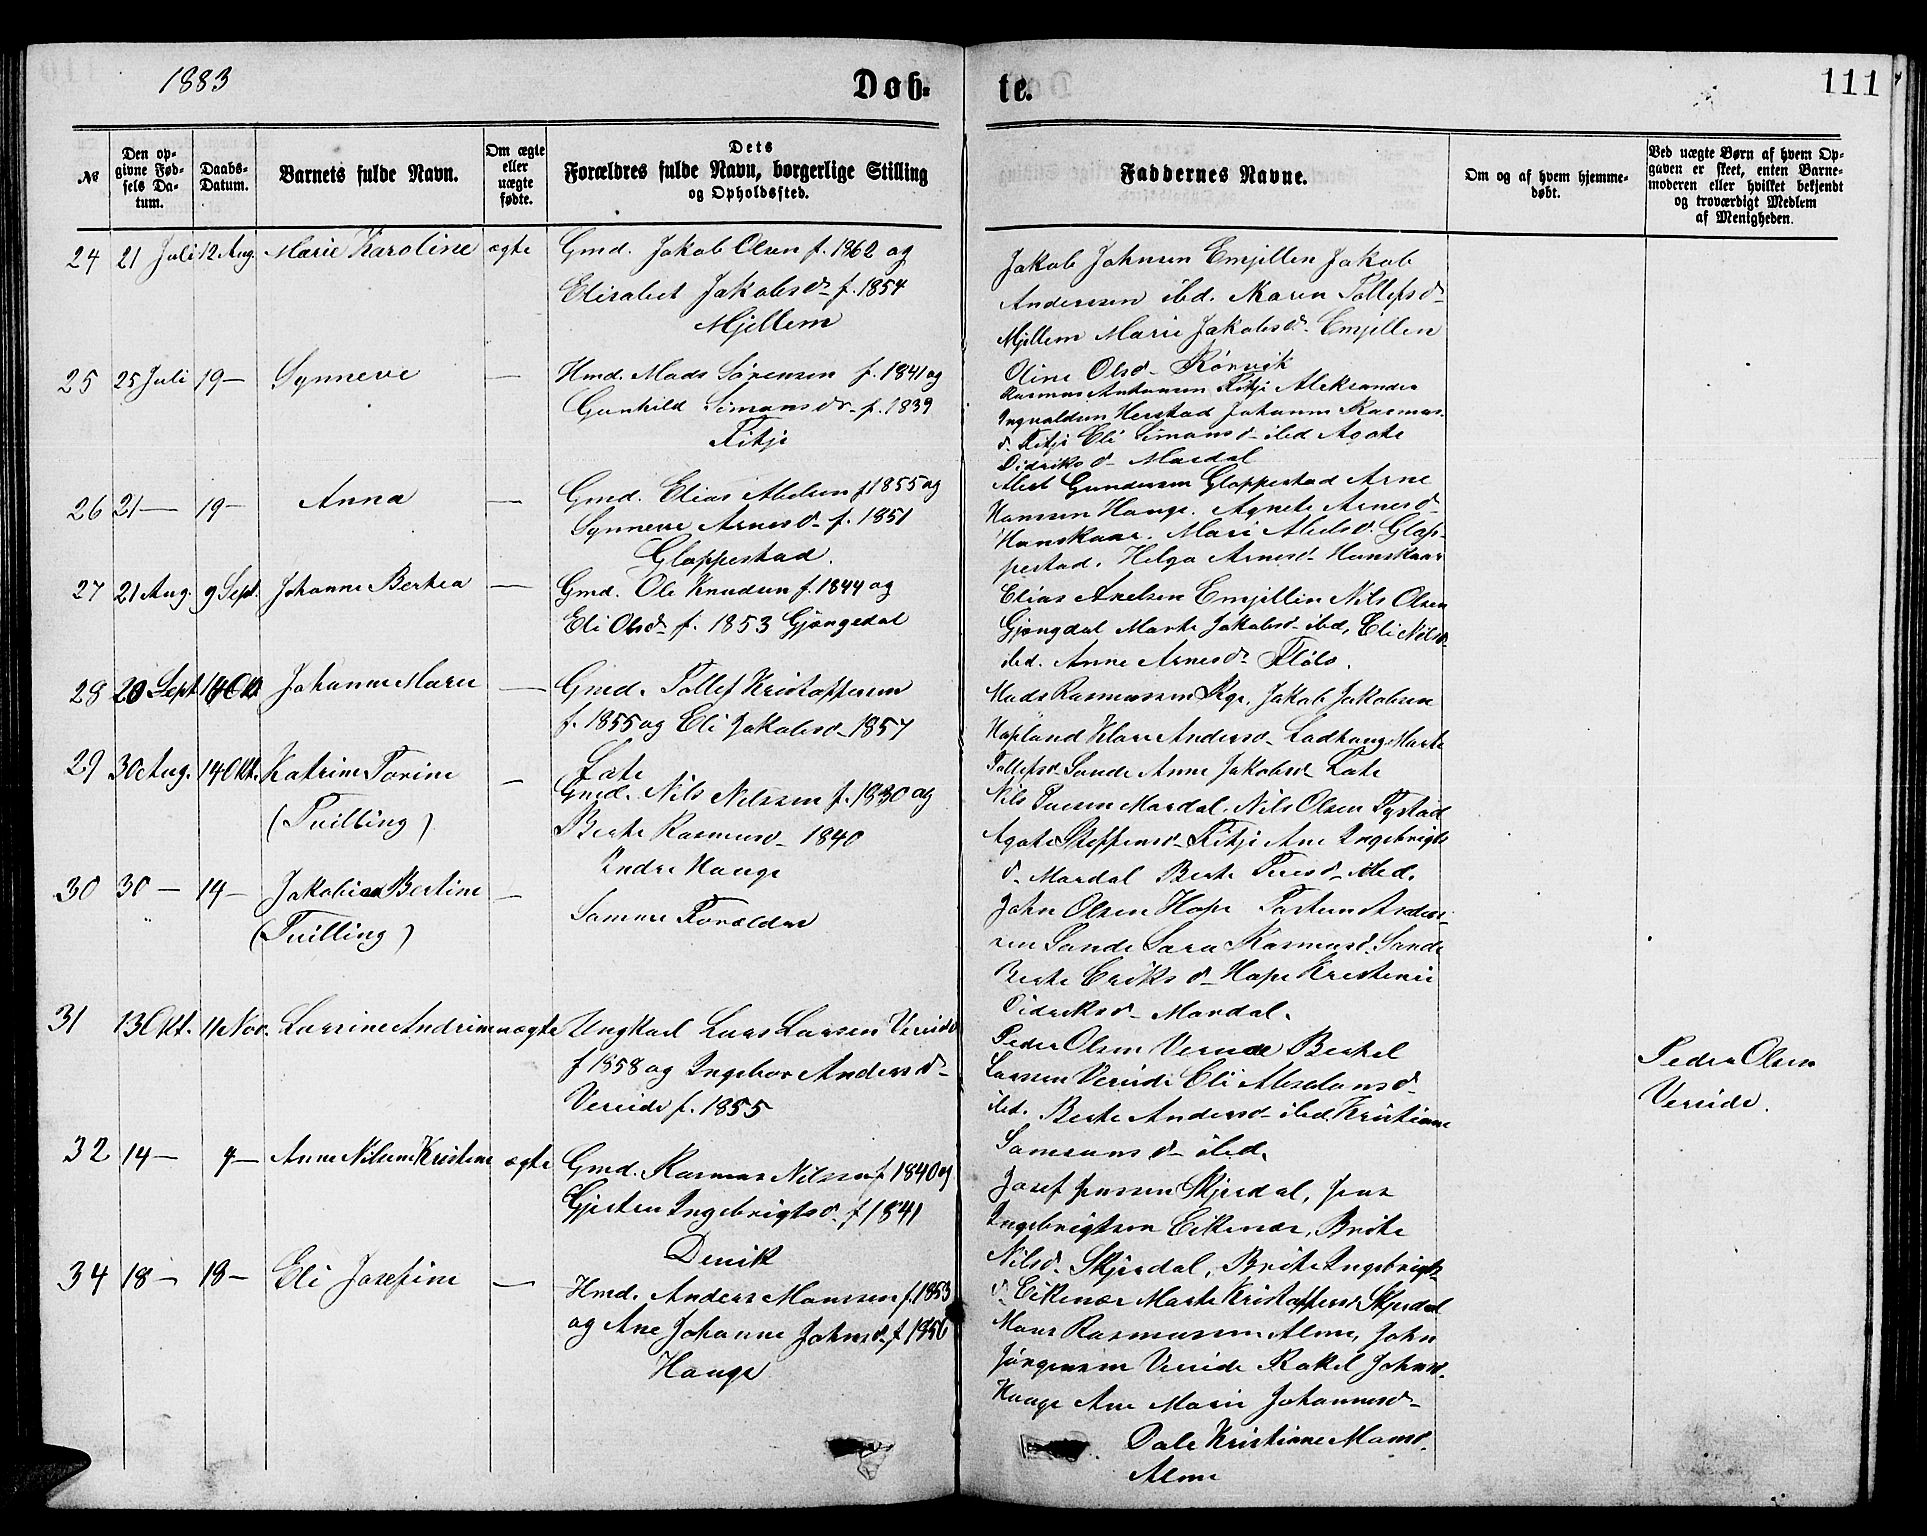 1883
Døb-
te.
111
№
Den op-
givne Fød-
sels Da-
tum.
Daabs-
Datum.
Barnets fulde Navn.
Om ægte
eller
uægte
fødte.
Dets
Forældres fulde Navn, borgerlige Stilling
og Opholdssted.
Faddernes Navne.
Om og af hvem hjemme-
døbt.
Ved uægte Børn af hvem Op-
gaven er skeet, enten Barne-
moderen eller hvilket bekjendt
og troværdigt Medlem
af Menigheden.
24 21 Juli 12 Aug. Marie Karoline ægte Gmd. Jakob Olsen f. 1862 og
Elisabet Jakobsd. f. 1854
Mjellem
Jakob Johnsen Emjellen Jakob
Anderssen ibd. Maren Tollefsd.
Mjellem Marie Jakobsd. Emjellen
Oline Olsd. Rørvik
25 25 Juli 19 — Synneve — Hmd. Mads Sørensen f. 1841 og
Gunhild Simonsd. f. 1839
Fitje
Rasmus Antonsen Fitje Aleksander
Ingvaldsen Herstad Johanne Rasmus-
d. Fitje Eli Simonsd. ibd Agate
Didriksd. Mardal
26 21 — 19 — Anna — Gmd. Elias Abelsen f 1855 og
Synneve Arnesd. f. 1851
Gloppestad.
Abel Gundersen Gloppestad Arne
Hanssen Hauge. Agnete Arnesd.
Hanskaar. Mari Abelsd. Glop-
pestad. Helga Arnesd. Hanskaar
27 21 Aug. 9 Sept. Johanne Bertea — Gmd. Ole Knudsen f. 1844 og
Eli Olsd. f. 1853 Gjøngedal
Elias Axelsen Emjellen Nils Olsen
Gjøngdal Marte Jakobsd. ibd, Eli Nilsd.
ibd. Anne Arnesd. Fløle.
28 20 Sept 14 Okt. Johanne Marie — Gmd. Tollef Kristoffersen
f. 1855 og Eli Jakobsd. 1857
Lote
Mads Rasmussen Ryg, Jakob Jakobsen
Hopland Klara Andersd. Ladhaug Marte
Tollefsd. Sande Anne Jakobsd. Lote
29 30 Aug. 14 Okt. Katrine Torine — Gmd. Nils Nilssen f. 1830 og
(Tvilling) Berte Rasmusd. 1840
Indre Hauge
Mardal, Nils Olsen Tystad
Agate Steffensd. Fitje Ane Ingebrigts
d. Mardal Berte Peresd. ibd.
30 30 — 14 — Jakobine Bertine — Samme Forældre
(Tvilling)
John Olsen Hope Torsten Anders-
sen Sande Sara Rasmusd. Sande
Berte Eriksd. Hope Kristense
Didriksd. Mardal.
31 13 Okt. 11 Nov. Lavrine Andrine uægte Ungkarl Lars Larsen Vereide
f 1858 og Ingebor Andersd.
Vereide f. 1855
Peder Olsen Vereide Bertel
Larssen Vereide Eli Absalonsd.
ibd. Berte Andersd. ibd. Kristiane
Samsonsd. ibd.
Peder Olsen
Vereide.
32 14 — 4 — Anne Nilsine Kristine ægte Gmd. Rasmus Nilssen f 1840 og
Gjertru Ingebrigtsd. f 1841
Devik
Josef Jenssen Skjerdal, Jens
Ingebrigtsen Eikenær, Brite
Nilsd. Skjerdal, Brite Ingebrigts-
d. Eikenær Marte Kristoffersd Skjerdal
34 18 — 18 — Eli Josefine — Hmd. Anders Monssen f. 1853
og Ane Johanne Johnsd. f 1856
Hauge
Mons Rasmussen Alme, John
Jørgenssen Vereide Rakel Johnsd.
Hauge Ane Marie Johannesd.
Dale Kristiane Monsd.
Alme